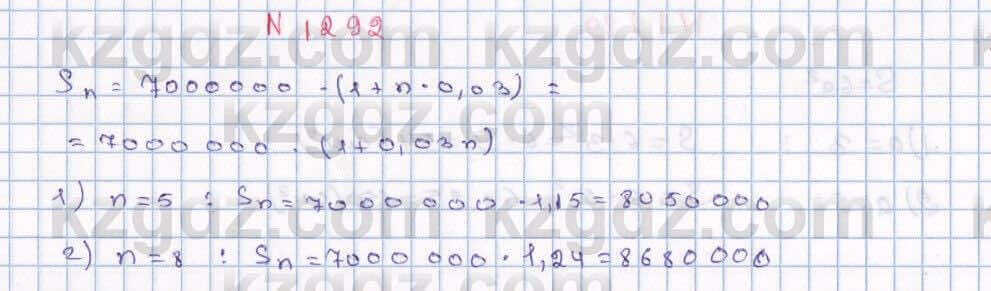 N 1292
kzgdz.com kzgdz.com kzgdz.com
Sn = 7000000 · (1 + n · 0,03) =
kzgdz.com
= 7000 000 · (1+0,03n)
1) n = 5 : Sn = 7000 000 · 1,15 = 8050 000
kzgdz.com kzgdz.com kzgdz.com
2) n = 8 : Sn = 7000 000 · 1,24 = 8680 000